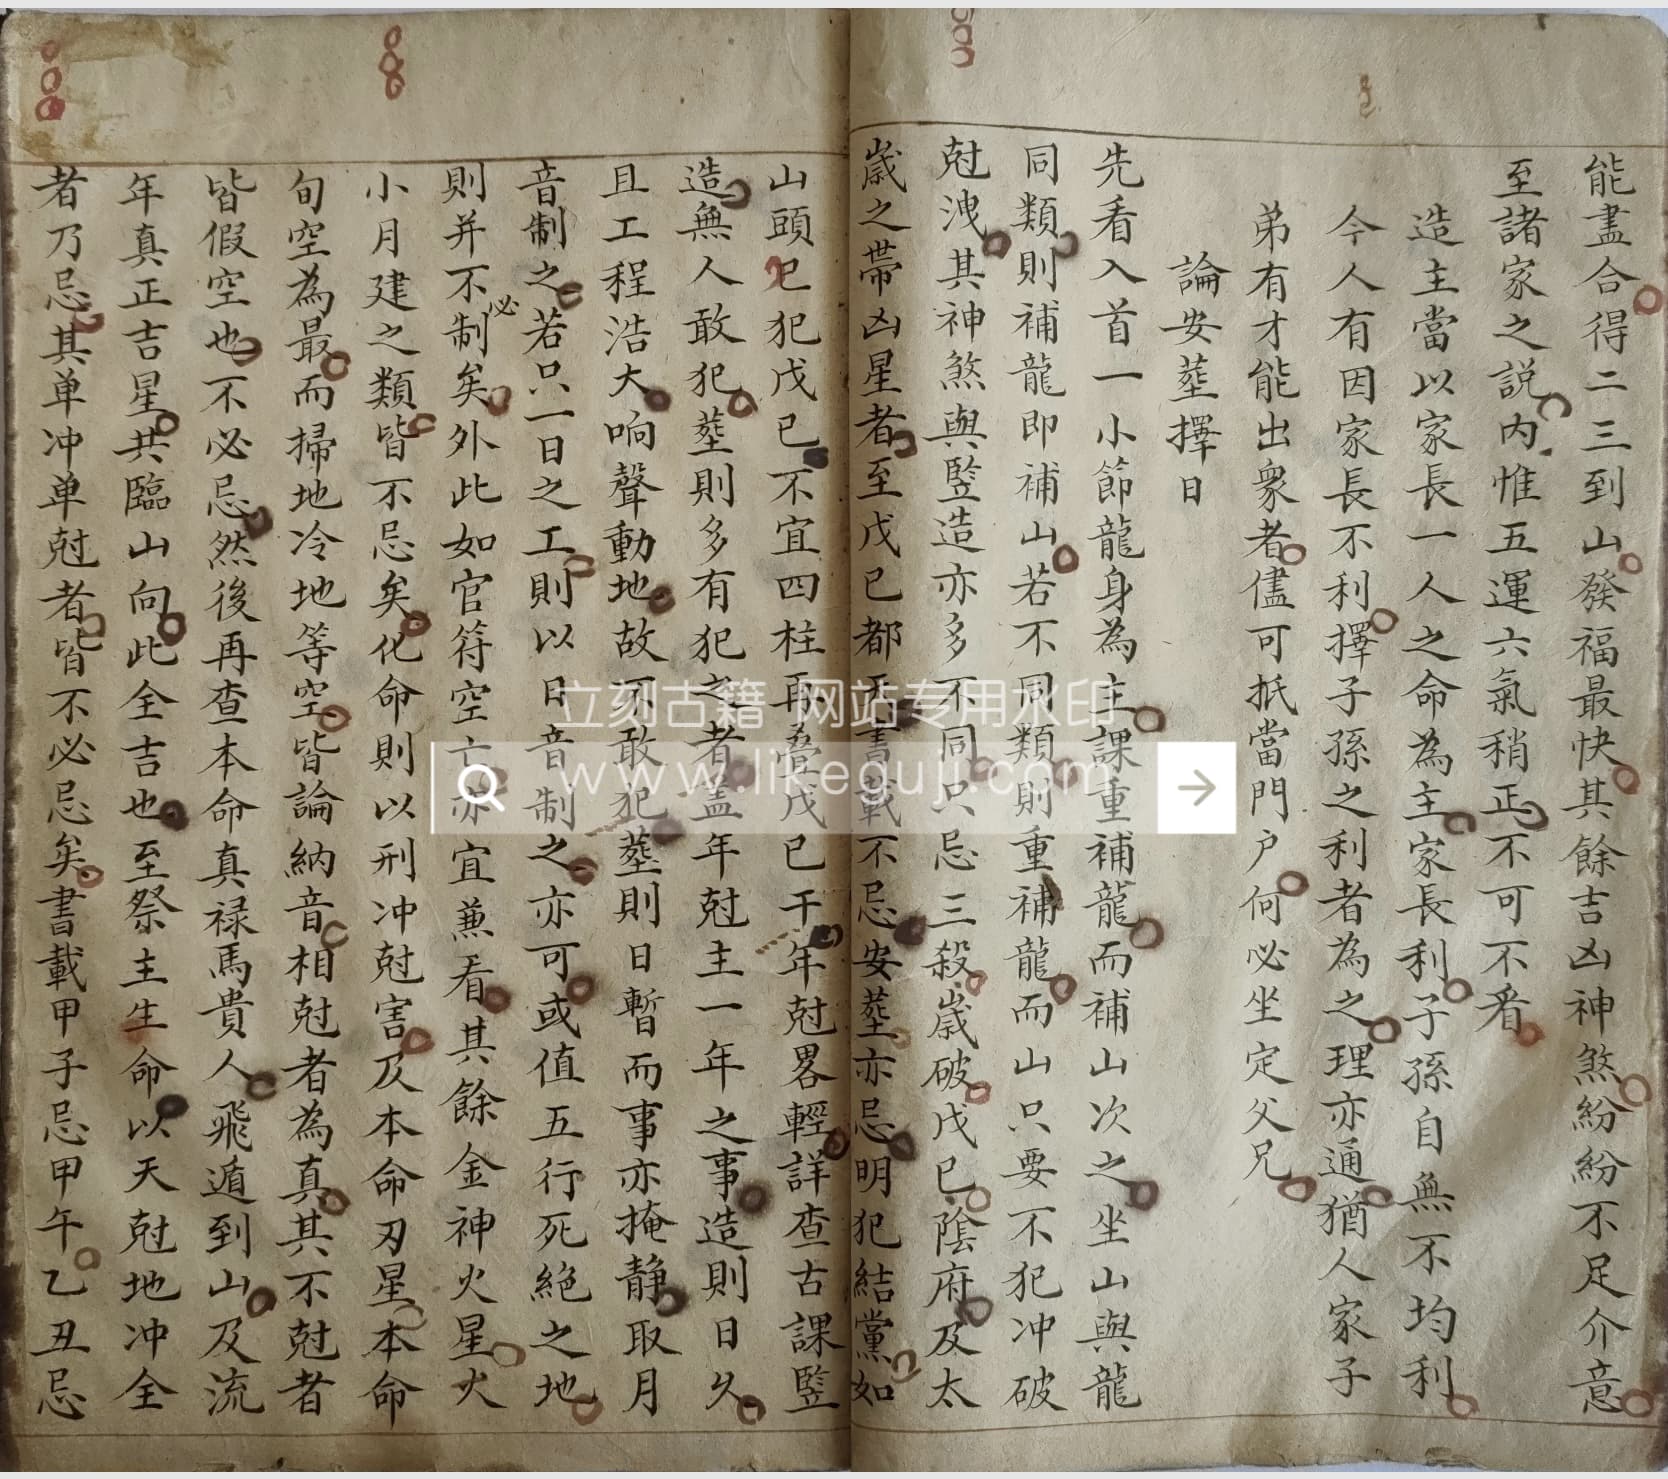 能盡合得二三到山發福最快其餘吉凶神煞紛紛不足介意
至諸家之説內惟五運六氣稍正不可不看
造主當以家長一人之命為主家長利子孫自無不均利
今人有因家長不利擇子孫之利者為之理亦通猶人家子
弟有才能出衆者儘可抵當門户何必坐定父兄
論安塟擇日
先看入首一小節龍身為主課重補龍而補山次之坐山與龍
同類則補龍即補山若不同類則重補龍而山只要不犯冲破
尅洩其神煞與竪造亦多不同只忌三殺歲破戊已陰府及太
歲之帶凶星者至戊已都天書載不忌安塟亦忌明犯結黨如
山頭已犯戊已不宜四柱再叠戊已干年尅畧輕詳查古課竪
造無人敢犯塟則多有犯之者蓋年尅主一年之事造則日久
且工程浩大响聲動地故不敢犯塟則日暫而事亦掩静取月
音制之若只一日之工則以日音制之亦可或值五行死絶之地
則并不必制矣外此如官符空亡亦宜兼看其餘金神火星火
小月建之類皆不忌矣化命則以刑冲尅害及本命刃星本命
旬空為最而掃地冷地等空皆論納音相尅者為真其不尅者
皆假空也不必忌然後再查本命真禄馬貴人飛遁到山及流
年真正吉星共臨山向此全吉也至祭主生命以天尅地冲全
者乃忌其单冲单尅者皆不必忌矣書載甲子忌甲午乙丑忌
立刻古籍 网站专用水印
www.likeguji.com